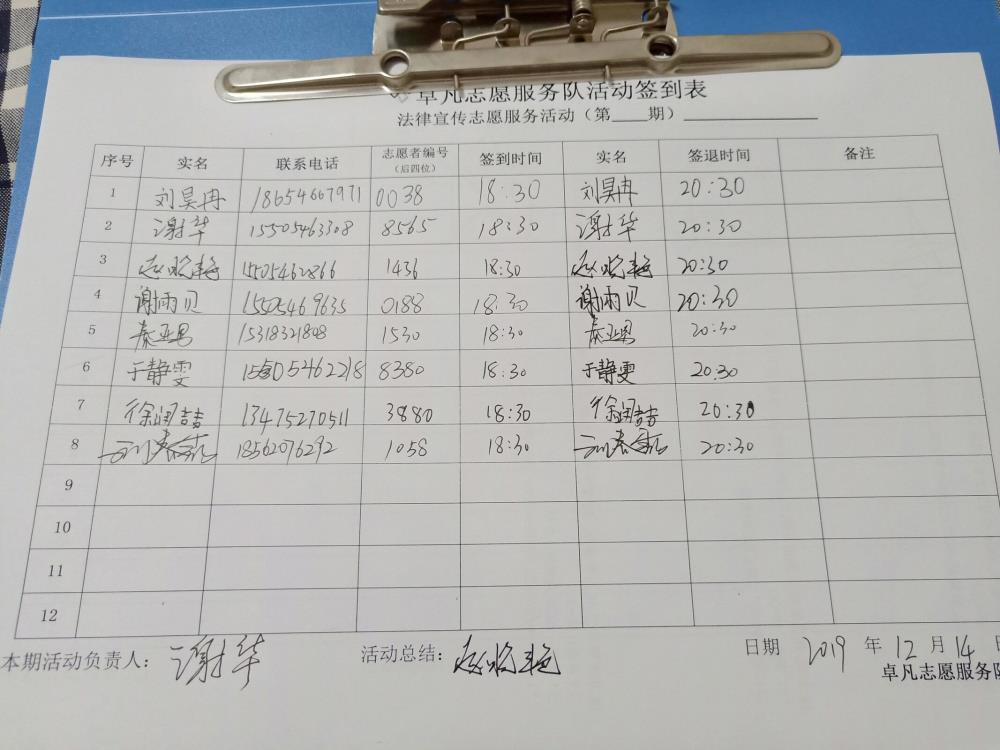 卓凡志愿服务队活动签到表
法律宣传志愿服务活动（第____期）____________
序号 实名 联系电话 志愿者编号（后四位） 签到时间 实名 签退时间 备注
1 刘昊冉 18654667971 0038 18:30 刘昊冉 20:30
2 谢华 15505463308 8565 18:30 谢华 20:30
3 赵晓艳 1505462866 1436 18:30 赵晓艳 20:30
4 谢雨贝 15505469635 0188 18:30 谢雨贝 20:30
5 秦亚男 15318321808 1530 18:30 秦亚男 20:30
6 于静雯 8380 18:30 于静雯 20:30
7 徐闰喆 13475270511 3880 18:30 徐闰喆 20:30
8 18562076292 1058 18:30 20:30
9
10
11
12
本期活动负责人：谢华 活动总结：赵晓艳 日期 2019 年 12 月 14 日
卓凡志愿服务队